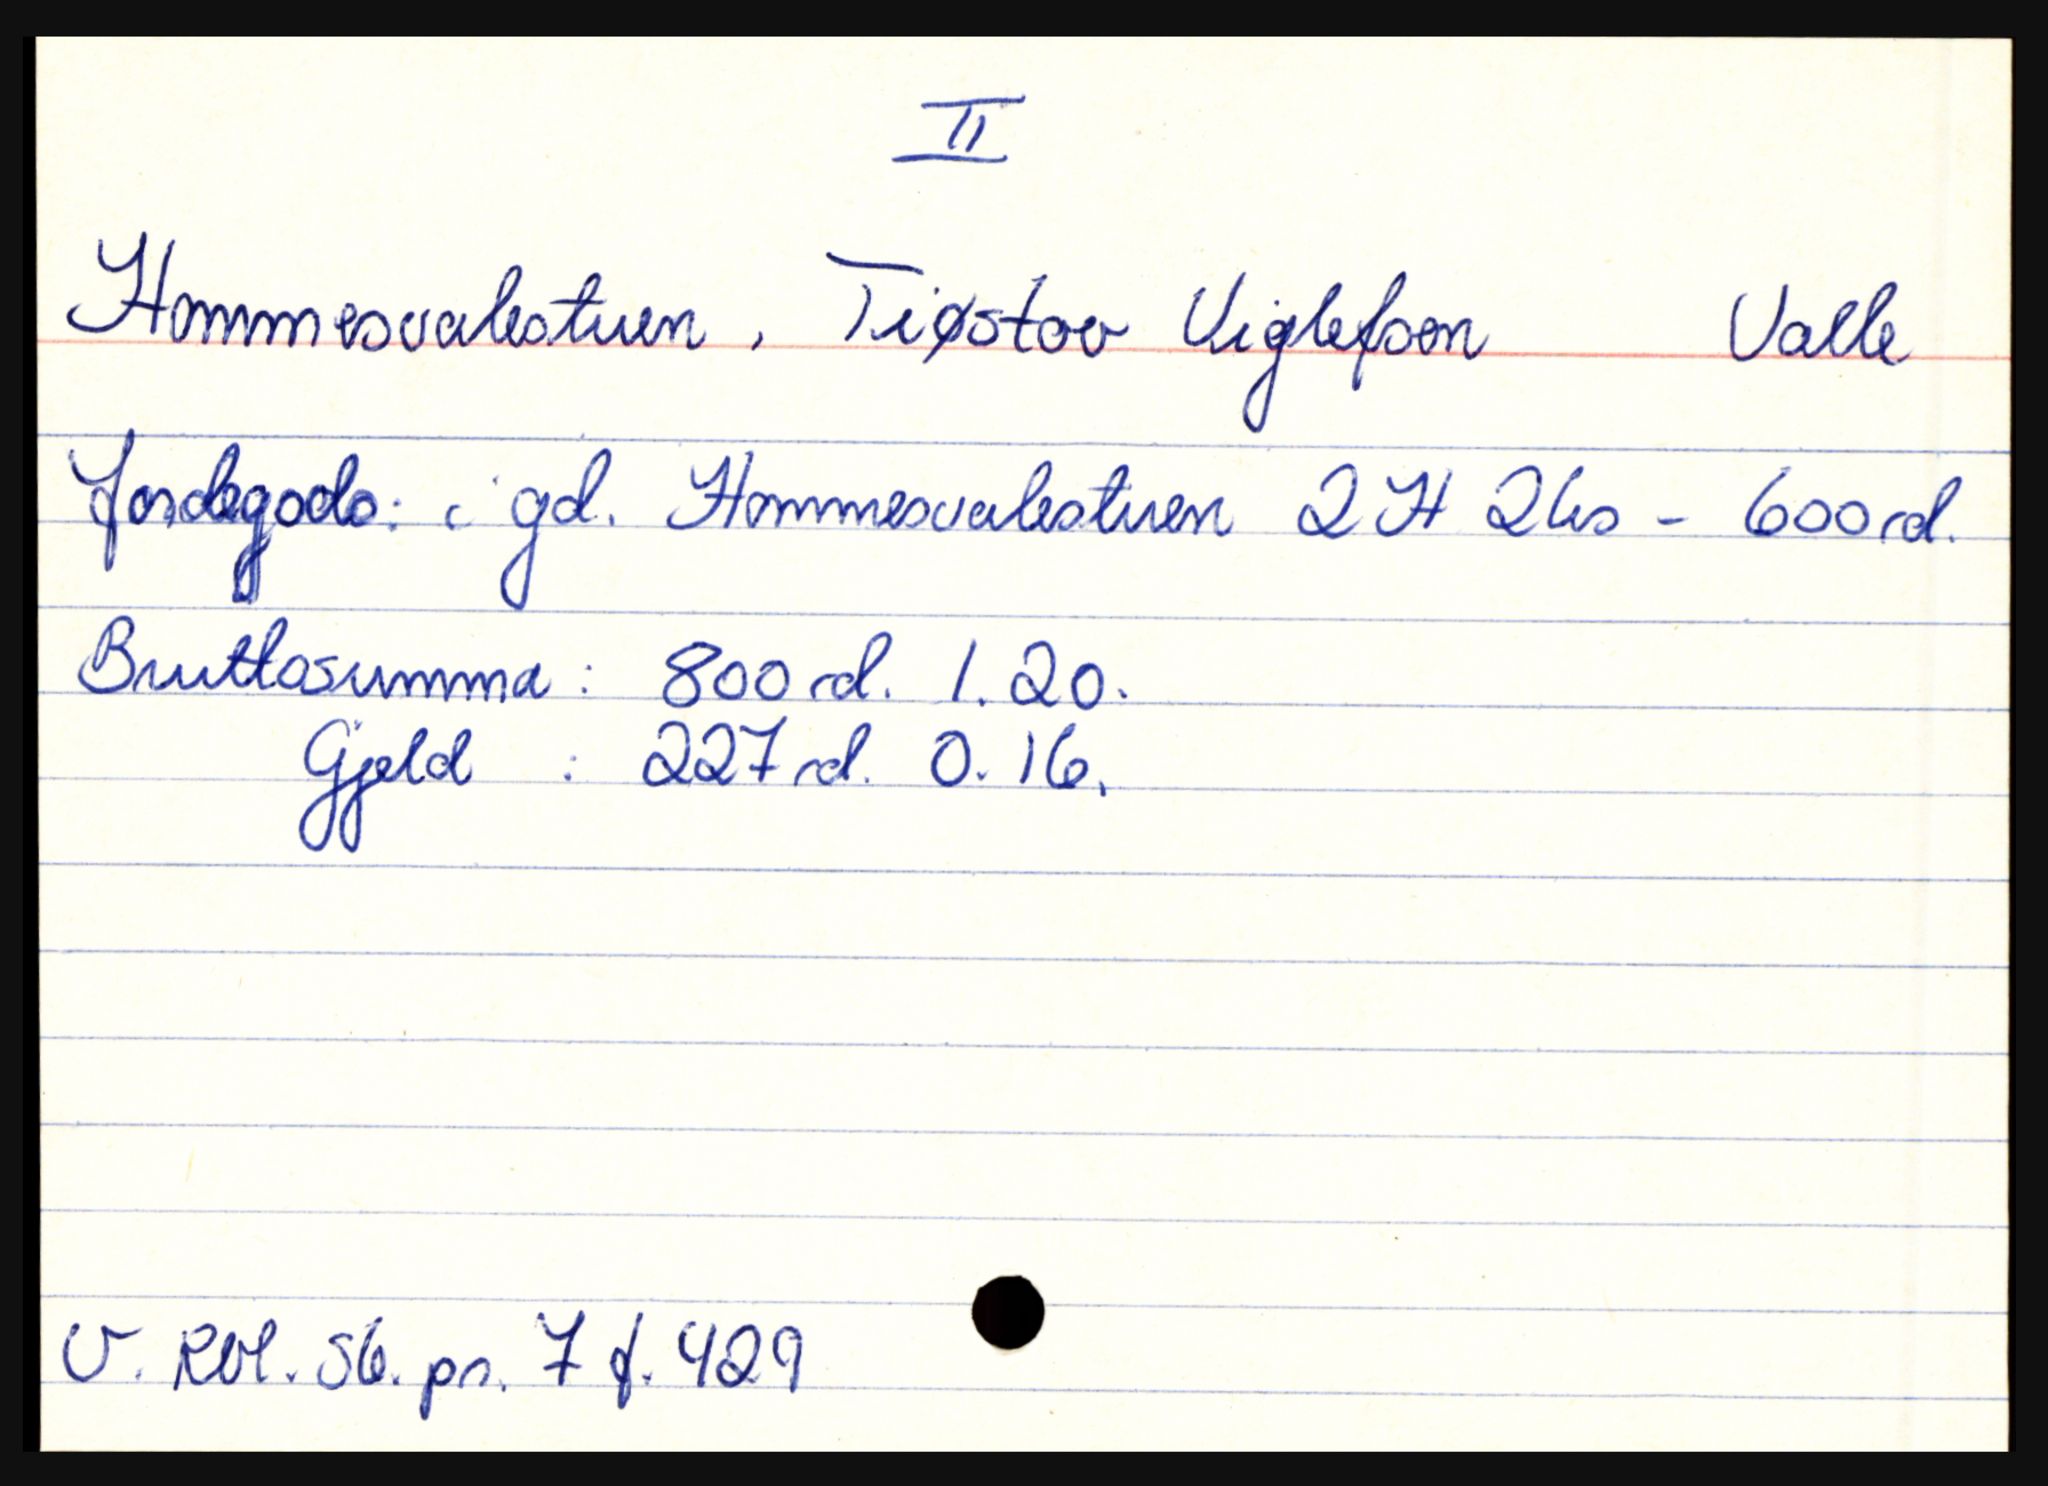 II
Hommesvalestuen, Tiøstov Viglefsen Valle
Jordegods: i gd. Hommesvalestuen 2 H 2 ks - 600 rd.
Bruttosumma: 800 rd. 1. 20.
Gjeld : 227 rd. 0. 16.
V. Rbl. Sk. pr. 7 f. 429